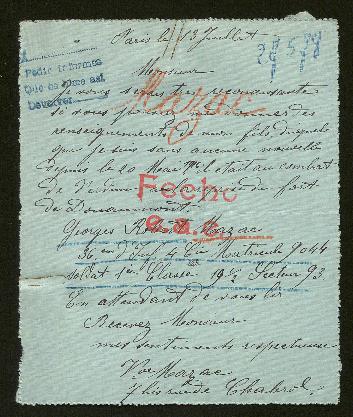 Paris le 13 Juillet
Pedir informes
Monsieur
Je vous serais très reconnaissante
Mazac
si vous pouviez me donner des
renseignements de mon fils duquel
que je suis sans aucune nouvelle
depuis le 20 Mai il était au combat
de du fort
de Douaumont
Fecho
Georges Mazac
36e d'Inf 4e Cie Matricule 9044
Soldat 1ère Classe Secteur 93
En attendant de vous lire
Recevez Monsieur
mes sentiments respectueux
Vve Mazac
7 bis rue de Chabrol